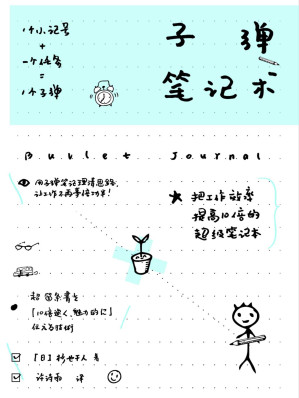 1个小记号
+
一个任务
=
1个子弹
子弹
笔记术
Bullet Journal
用子弹笔记理清思路,
让工作不再事倍功半!
★ 把工作效率
提高10倍的
超级笔记本
超图系书主
「10倍速く、魅力的に」
仕える技術
【日】杉 著
许诗雨 译